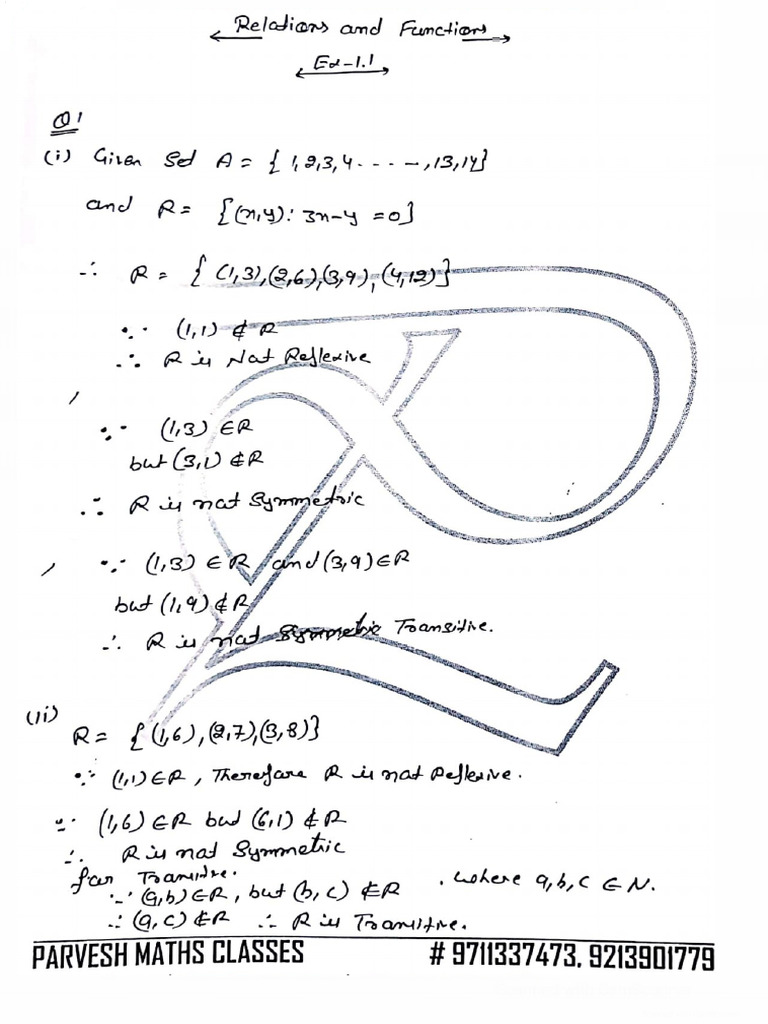 Relations and Functions
Ex-1.1
Q1
(i) Given Set A = { 1,2,3,4 - - - -, 13,14}
and R = {(x,y): 3x-y =0}
∴ R = { (1,3),(2,6),(3,9),(4,12)}
∵ (1,1) ∉ R
∴ R is Not Reflexive
, ∵ (1,3) ∈R
but (3,1) ∉R
∴ R is not Symmetric
, ∵ (1,3) ∈ R and (3,9) ∈R
but (1,9) ∉R
∴ R is not Symmetric Transitive.
(ii)
R = {(1,6),(2,7),(3,8)}
∵ (1,1) ∈R, Therefore R is not Reflexive.
∵ (1,6) ∈R but (6,1) ∉R
∴ R is not Symmetric
for Transitive.
∵ (a,b) ∈R, but (b,c) ∉R . where a,b,c ∈ N.
∴ (a,c) ∉R ∴ R is Transitive.
PARVESH MATHS CLASSES # 9711337473, 9213901779